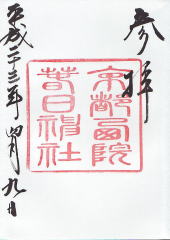 参拝
京都西院
春日神社
平成二十三年四月九日